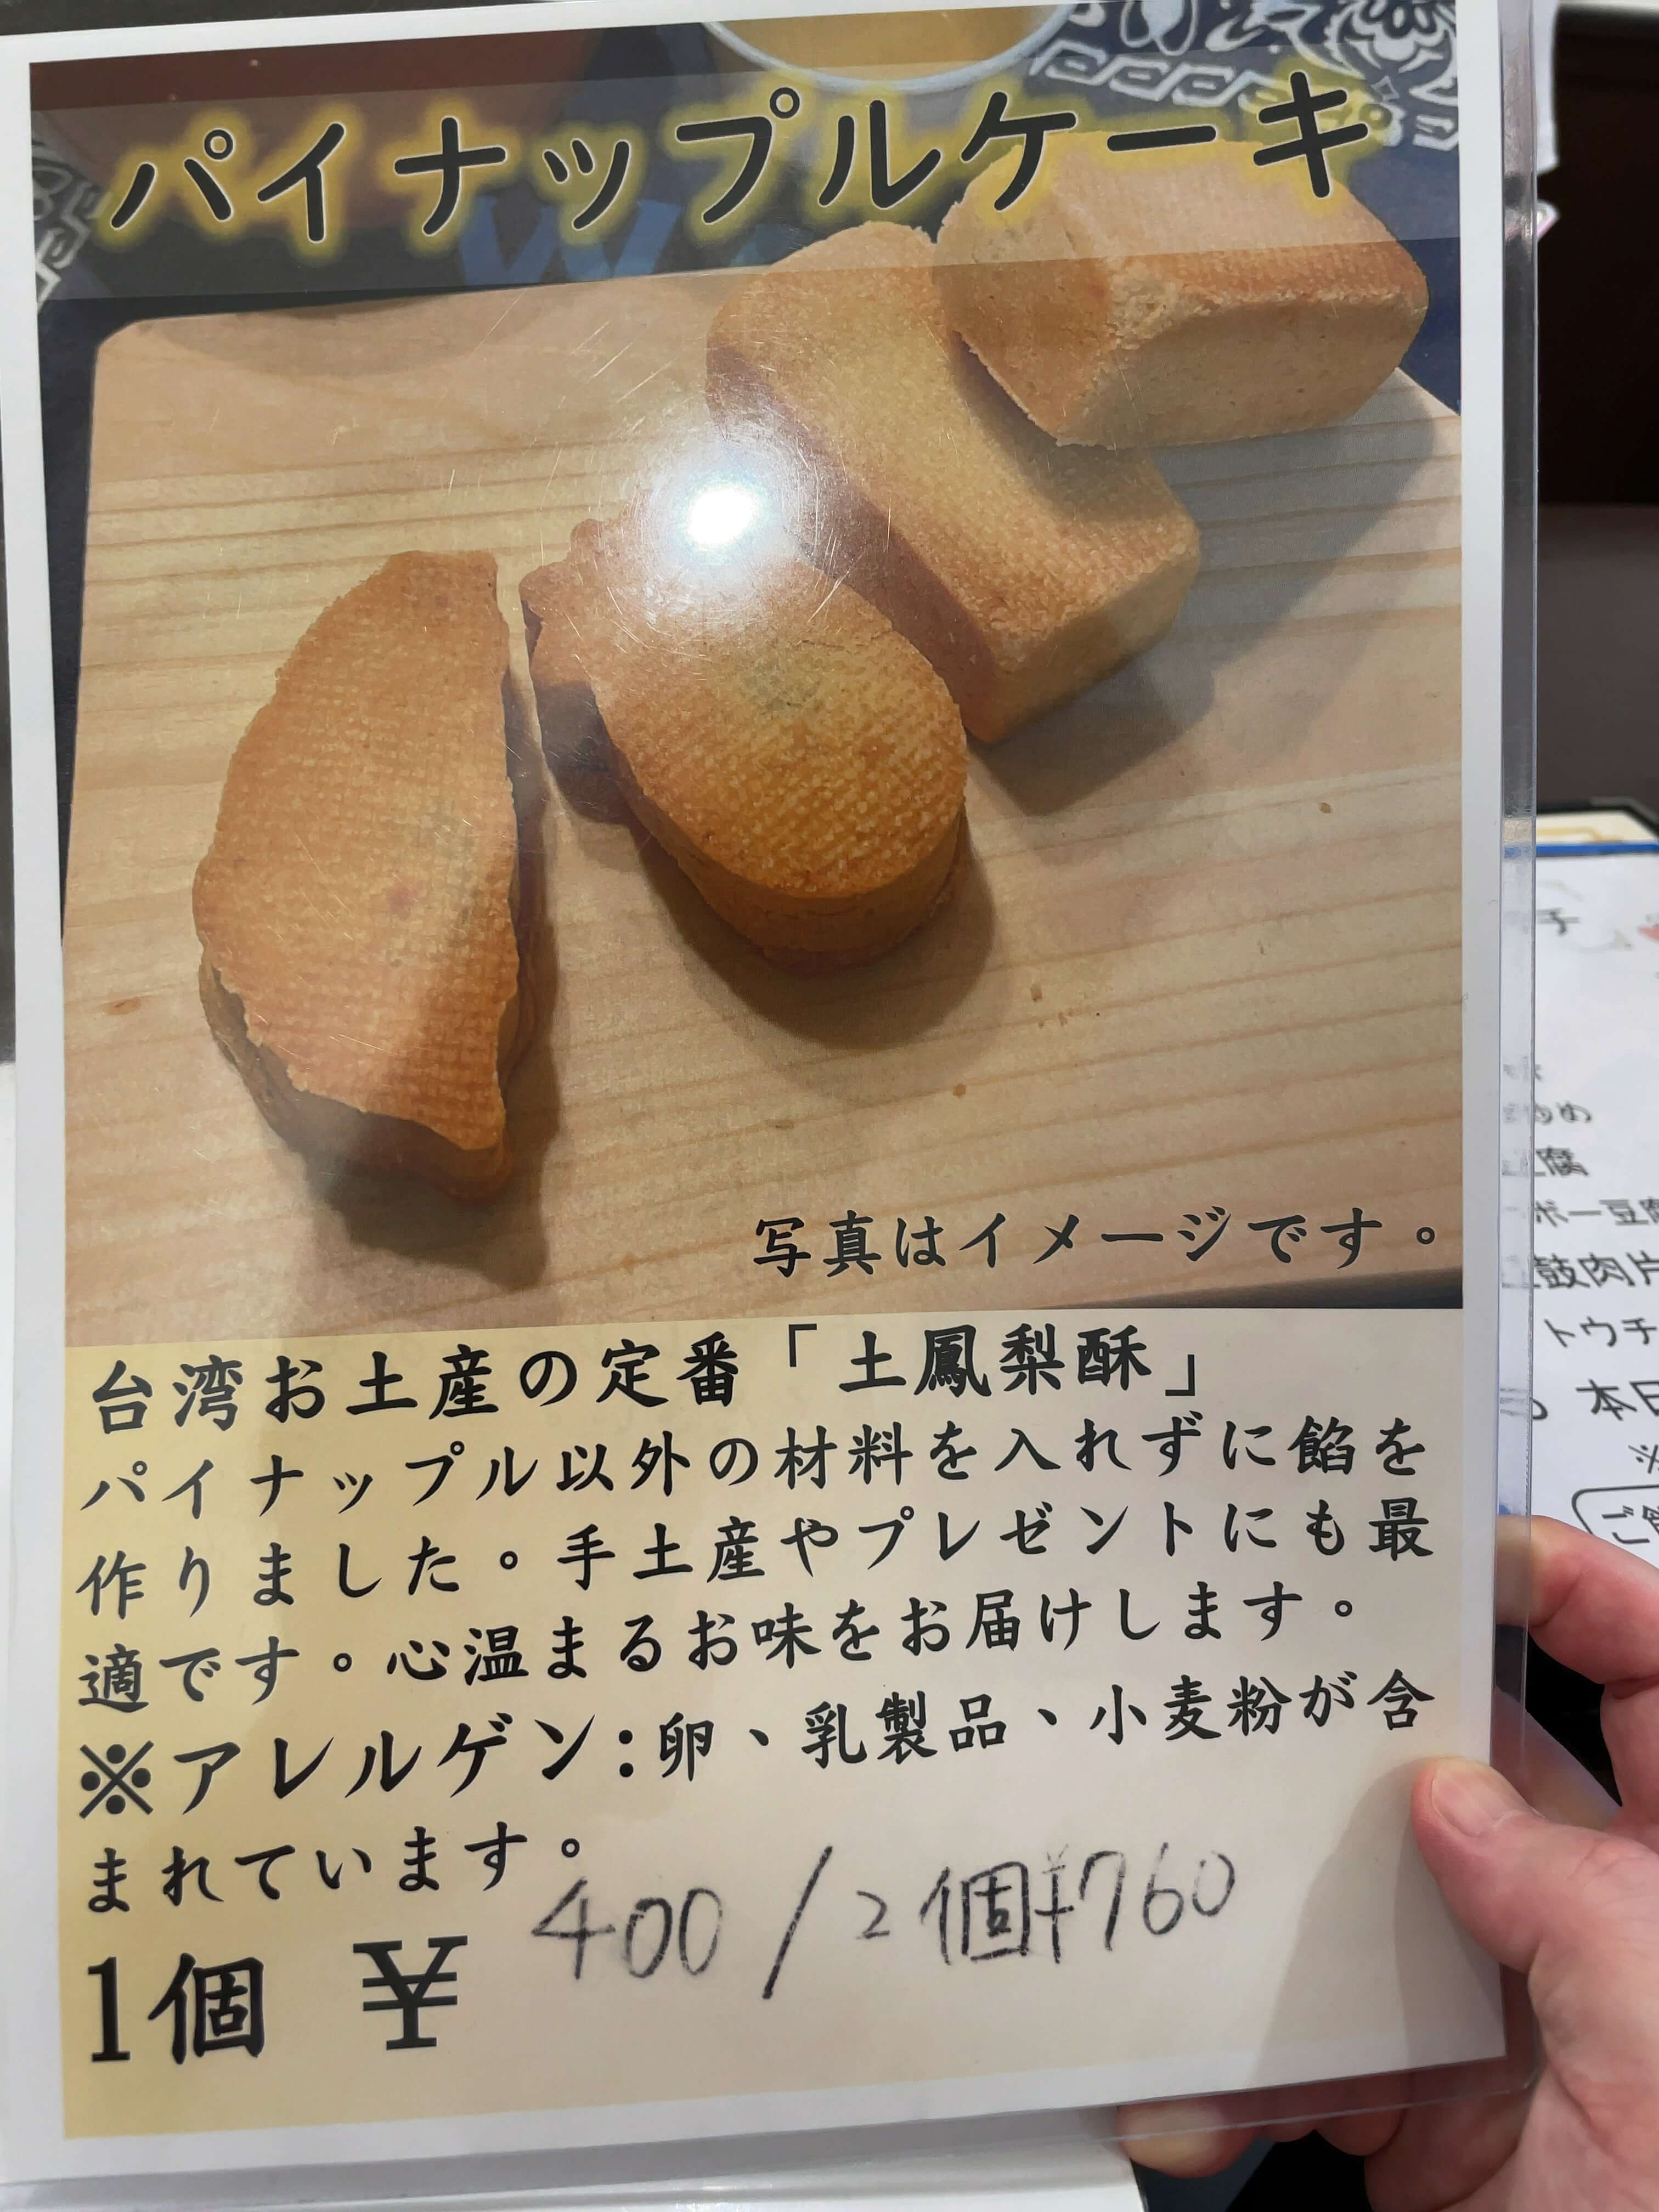 パイナップルケーキ
写真はイメージです。
台湾お土産の定番「土鳳梨酥」
パイナップル以外の材料を入れずに餡を
作りました。手土産やプレゼントにも最
適です。心温まるお味をお届けします。
※アレルゲン:卵、乳製品、小麦粉が含
まれています。
1個 ¥ 400 / 2個¥760
子
腐
ボー豆腐
鼓肉片
トウチ
本日
※